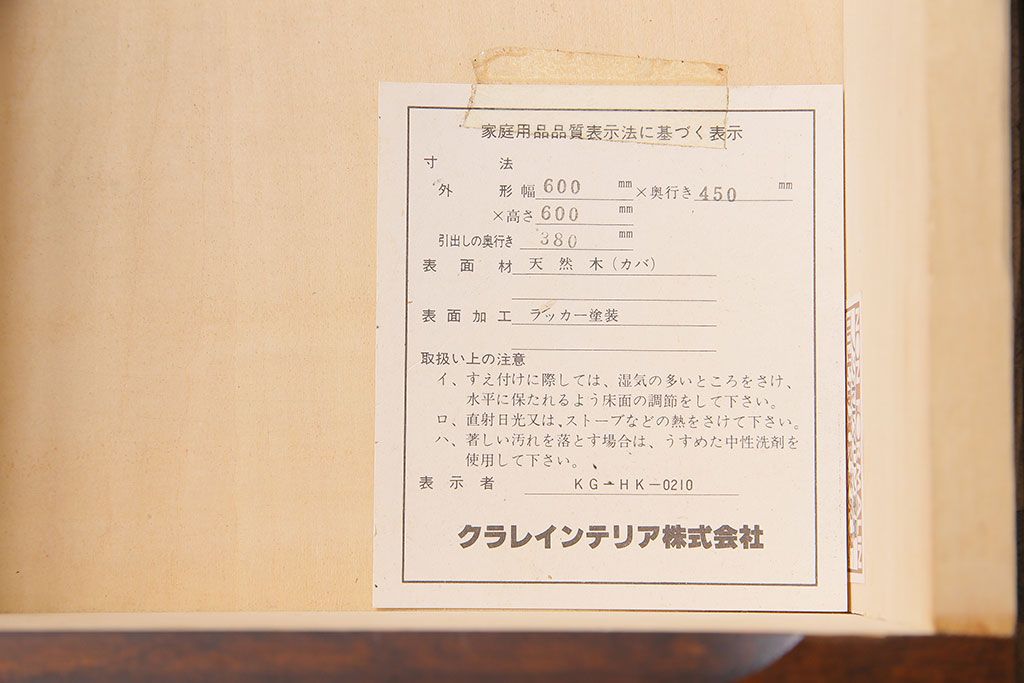 家庭用品品質表示法に基づく表示
寸法
外形 幅 600 mm ×奥行き 450 mm
×高さ 600 mm
引出しの奥行き 380 mm
表面材 天然木(カバ)
表面加工 ラッカー塗装
取扱い上の注意
イ、すえ付けに際しては、湿気の多いところをさけ、
水平に保たれるよう床面の調節をして下さい。
ロ、直射日光又は、ストーブなどの熱をさけて下さい。
ハ、著しい汚れを落とす場合は、うすめた中性洗剤を
使用して下さい。
表示者 KG-HK-0210
クラレインテリア株式会社